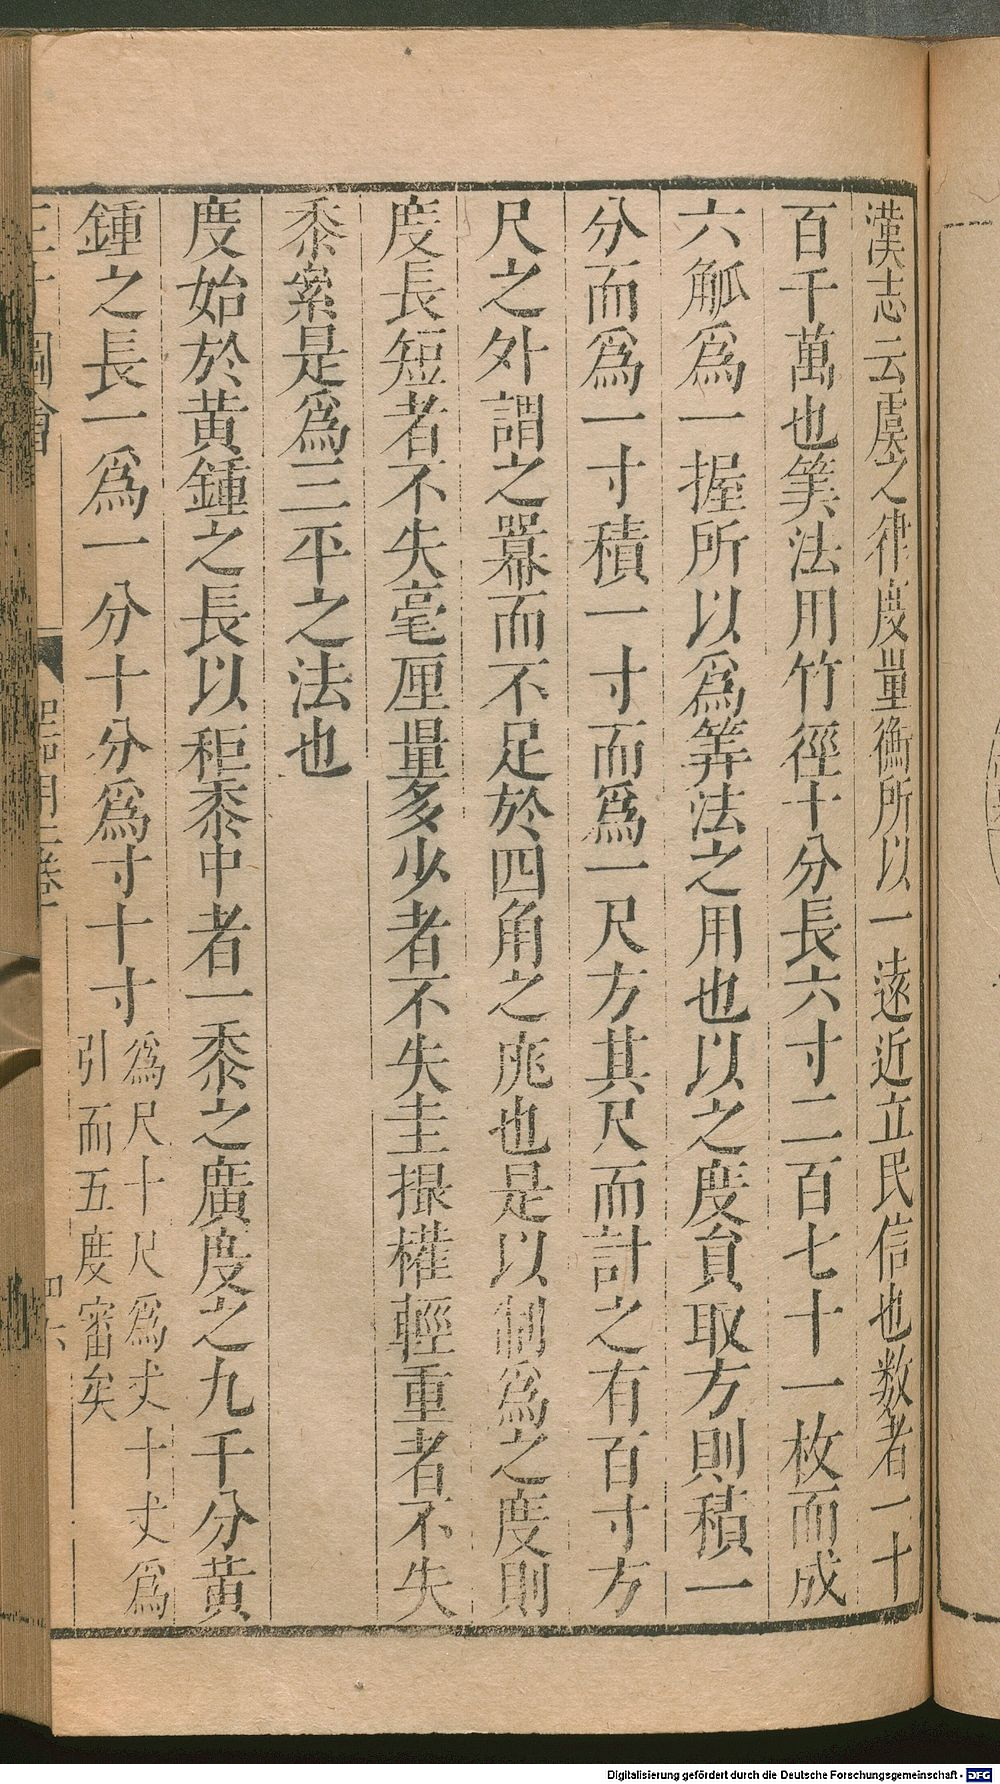 漢志云虞之律度量衡所以一遠近立民信也数者一十
百千萬也筭法用竹徑十分長六寸二百七十一枚而成
六觚爲一握所以爲筭法之用也以之度負取方則積一
分而爲一寸積一寸而爲一尺方其尺而計之有百寸方
尺之外謂之冪而不足於四角之庣也是以制爲之度則
度長短者不失毫厘量多少者不失圭撮權輕重者不失
黍絫是爲三平之法也
度始於黃鍾之長以秬黍中者一黍之廣度之九千分黃
鍾之長一爲一分十分爲寸十寸
爲尺十尺爲丈十丈爲
引而五度審矣
三才圖會
器用二卷
四六
Digitalisierung gefördert durch die Deutsche Forschungsgemeinschaft - DFG